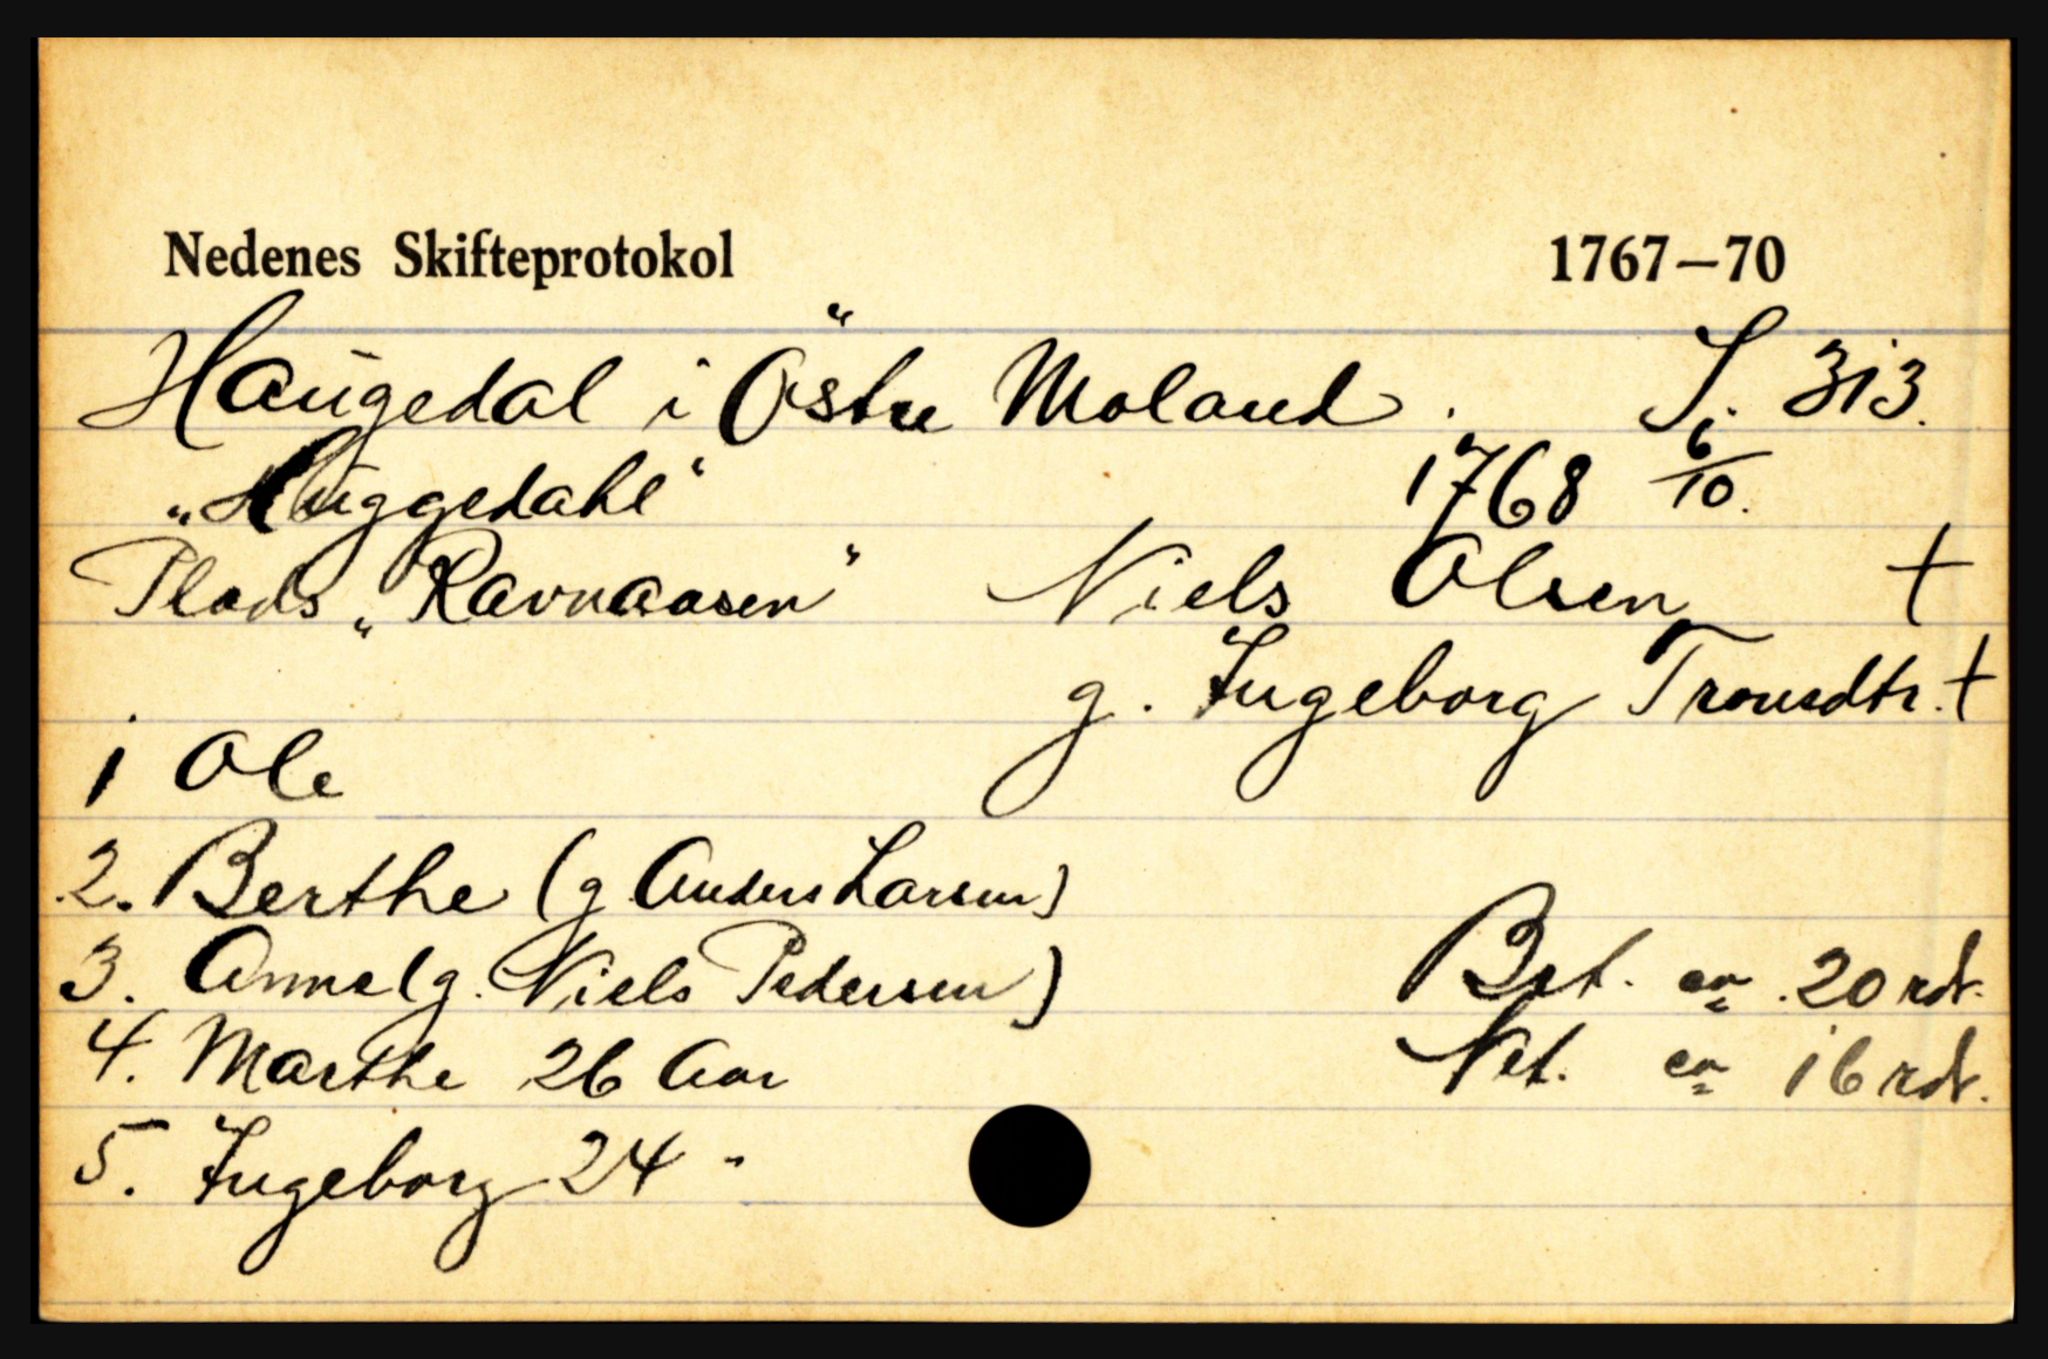 Nedenes Skifteprotokol 1767–70
Haugedal i Östre Moland. S. 313.
„Huggedahl“ 1768 6/10.
Plads „Ravnaasen“ Niels Olsen †
g. Ingeborg Tronsdtr. †
1 Ole
2. Berthe (g. Anders Larsen)
3. Anne (g. Niels Pedersen) Bet. ca 20 rdr.
4. Marthe 26 Aar Net. ca 16 rdr.
5. Ingeborg 24 "